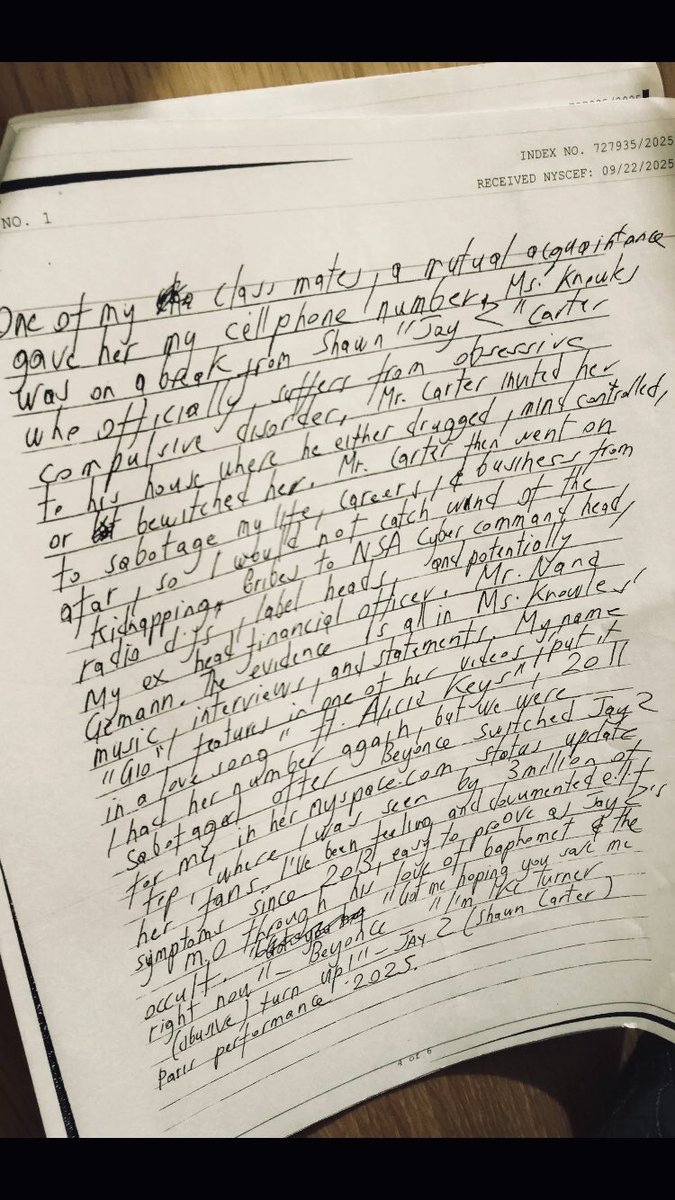 INDEX NO. 727935/2025
RECEIVED NYSCEF: 09/22/2025
NO. 1
One of my class mates, a mutual acquaintance
gave her my cellphone number. Ms. Knowles
was on a break from Shawn "Jay Z" Carter
who officially suffers from obsessive
compulsive disorder. Mr. Carter invited her
to his house where he either drugged, mind controlled,
or bewitched her. Mr. Carter then went on
to sabotage my life, careers, & business from
afar, so I would not catch wind of the
"Kidnapping". Bribes to NSA Cyber command head,
radio djs, label heads, and potentially
My ex head financial officer. Mr. Nana
Gemann. The evidence is all in Ms. Knowles'
music, interviews, and statements. My name
"Gio", features in one of her videos "put it
in a love song" ft. Alicia Keys". 2011
I had her number again, but we were
sabotaged after Beyonce switched Jay Z
for me, in her myspace.com, status update
Top, where I was seen by 3million of
her fans. I've been feeling and documented
symptoms since 2013, easy to proove as Jay Z's
M.O through his love of baphomet & the
occult. "Got me hoping you save me
right now" - Beyonce "I'm Turner
(abusive) turn up!" - JAY Z (Shawn Carter)
Paris performance 2025.
4 of 6